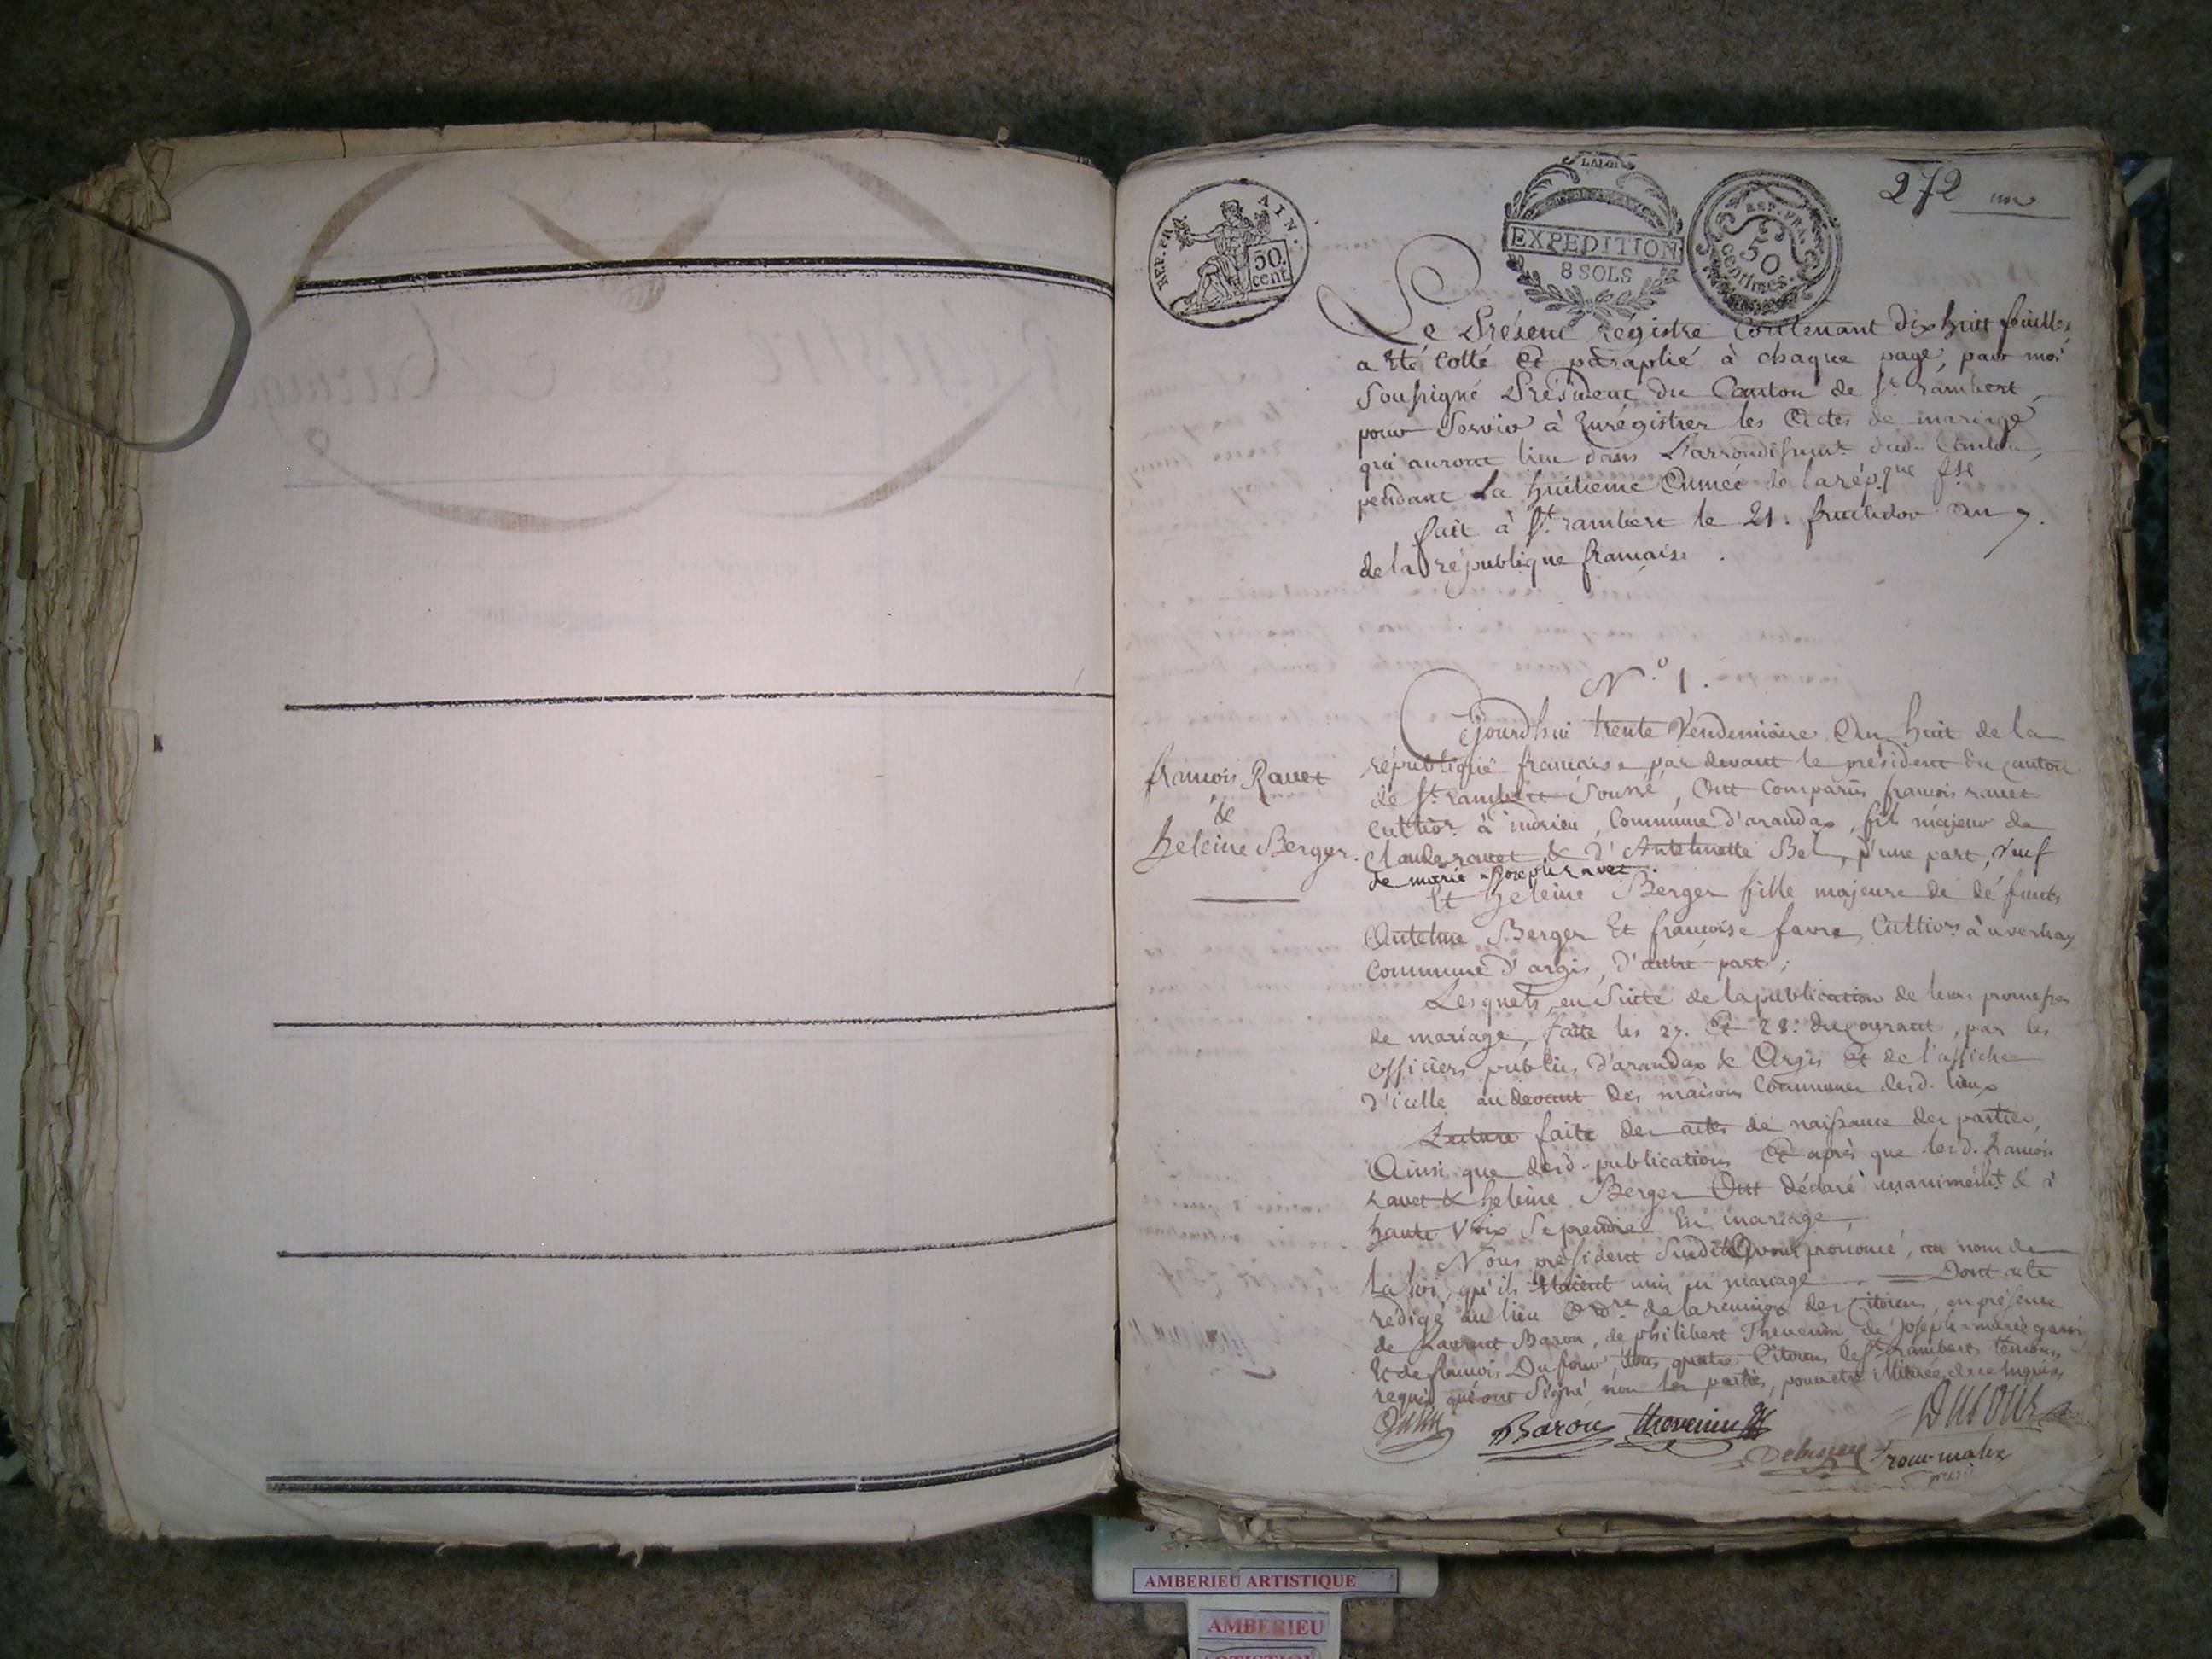 REP. FRA. AIN.
50. cent.
LA LOI
EXPEDITION
8 SOLS
REP. FRA.
50
Centimes
272
Le Présent registre Contenant dix huit feuilles
a été Cotté et paraphé à chaque page, par moi
Soussigné Président du Canton de St. rambert
pour Servir à Enrégistrer les Actes de mariage
qui auront lieu dans L'arrondissement dud. Canton,
pendant la huitieme Année de la répque fse
fait à St. rambert le 21. fructidor an 7.
de la république francaise.
N.o 1.
Cejourdhui trente Vendemiaire An huit de la
république francaise par devant le président du Canton
de St. rambert Soussé, Ont Comparus francois ravet
Cultior. à indrieu, Commune d'arandas, fils majeur de
Claude ravet & d'Anthelmette Bel, d'une part, veuf
de marie Josephe ravet.
francois Ravet
&
héleine Berger.
Et héleine Berger fille majeure de défunts
Antelme Berger Et francoise favre, Cultiors à
Commune d'argis, d'autre part;
Lesquels, en Suitte de la publication de leurs promesses
de mariage, faite les 27. Et 28. du Courant, par les
officiers publics d'arandas & Argis Et de l'affiche
d'icelle au devant des maisons Communes desd. lieux
Lecture faite des actes de naissance des parties,
Ainsi que desd. publications Et après que lesd. francois
ravet & héleine Berger Ont déclaré unanimémt. & à
haute Voix Se prendre En mariage,
Nous président Susdit Avons prononcé, au nom de
La loi, qu'ils étaient unis en mariage. Dont acte
rédigé au lieu de la reunion des Citoiens, en présence
de Laurent Baron, de philibert Thevenin, de Joseph-marie
Et de francois Dufour tous quatre Citoiens de St. rambert temoins
requis qui ont Signé non les parties, pour être illitérées de ce Enquises
Baron Thevenin
DUFOUR
AMBERIEU ARTISTIQUE
AMBERIEU
ARTISTIQUE